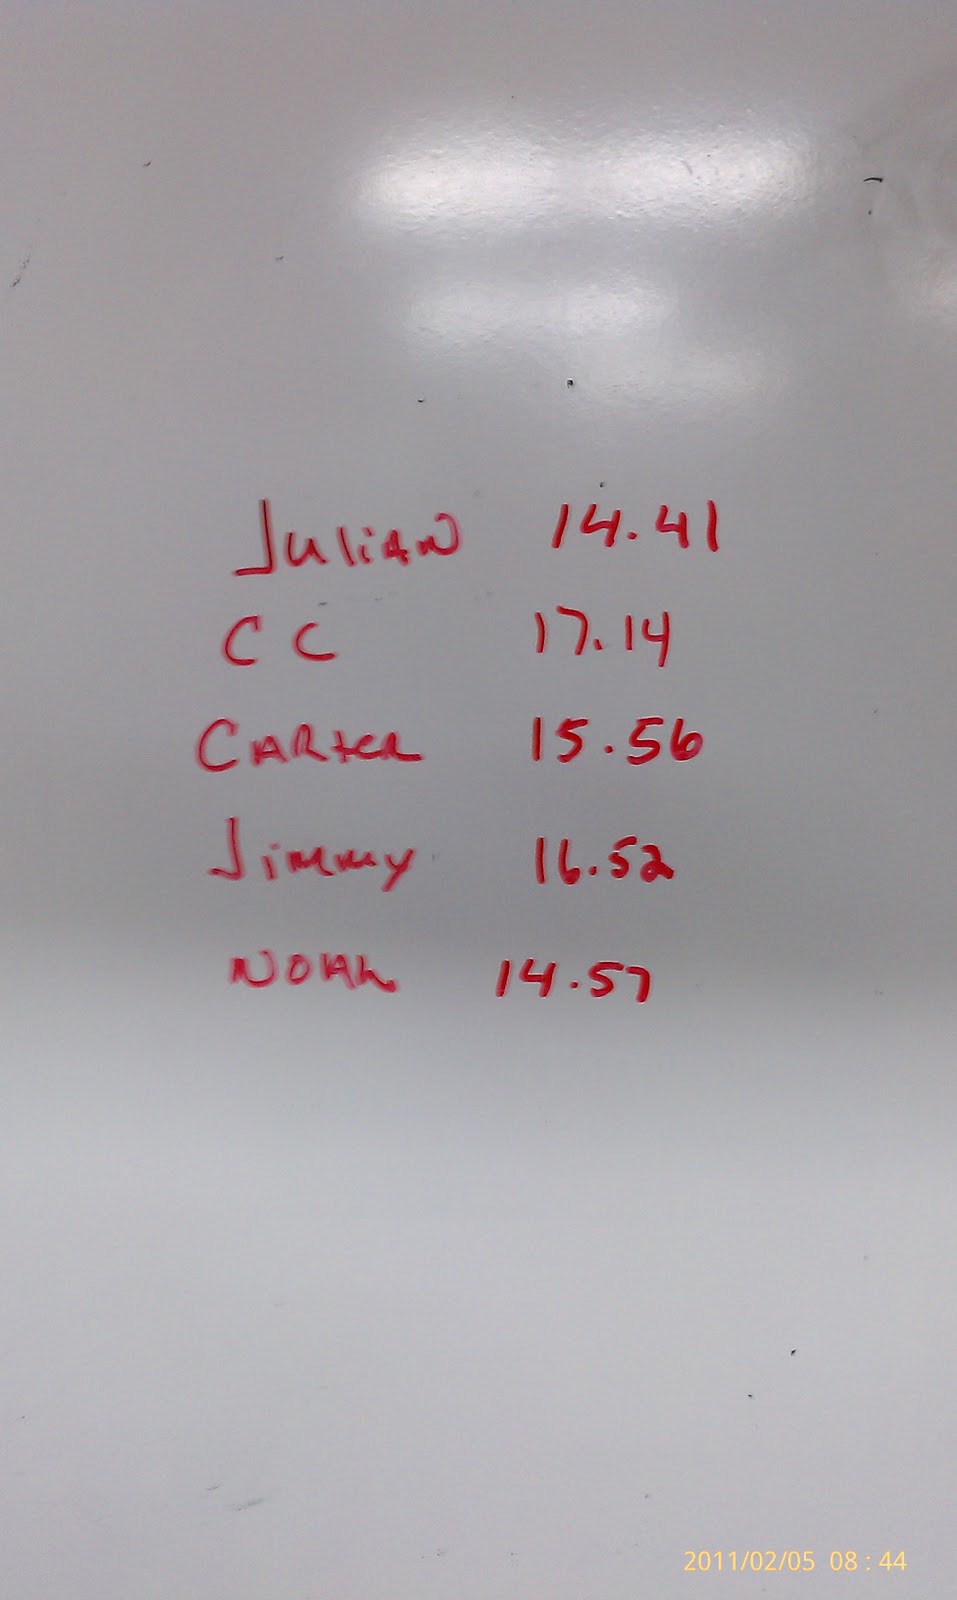 Julian 14.41
CC 17.14
Carter 15.56
Jimmy 16.52
Noah 14.57
2011/02/05 08:44